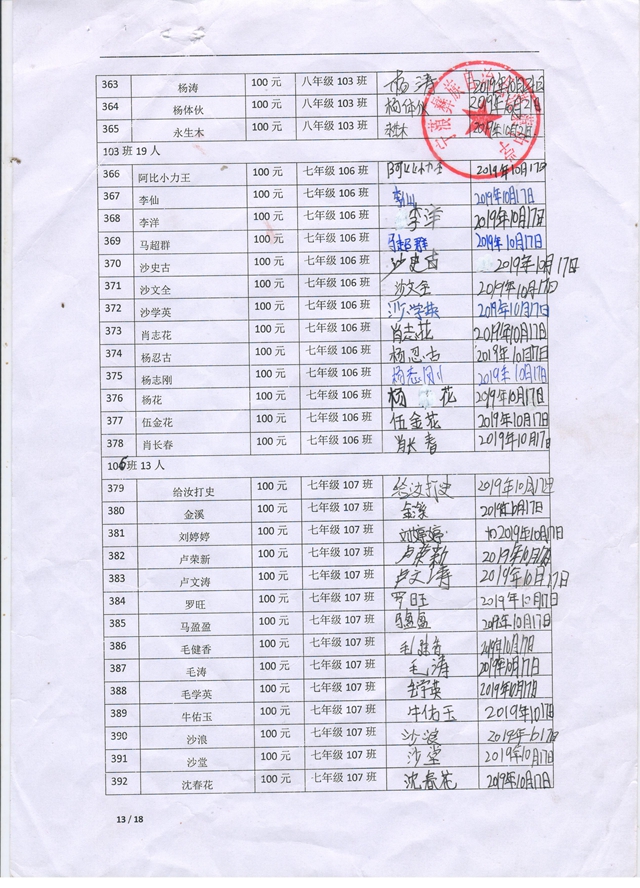 363 杨涛 100元 八年级103班 杨涛 2019年10月21日
364 杨体伙 100元 八年级103班 杨体伙 2019年10月21日
365 永生木 100元 八年级103班 2019年10月21日
103班19人
366 阿比小力王 100元 七年级106班 阿比小力王 2019年10月17日
367 李仙 100元 七年级106班 李仙 2019年10月17日
368 李洋 100元 七年级106班 李洋 2019年10月17日
369 马超群 100元 七年级106班 马超群 2019年10月17日
370 沙史古 100元 七年级106班 沙史古 2019年10月17日
371 沙文全 100元 七年级106班 沙文全 2019年10月17日
372 沙学英 100元 七年级106班 沙学英 2019年10月17日
373 肖志花 100元 七年级106班 肖志花 2019年10月17日
374 杨忍古 100元 七年级106班 杨忍古 2019年10月17日
375 杨志刚 100元 七年级106班 杨志刚 2019年10月17日
376 杨花 100元 七年级106班 杨花 2019年10月17日
377 伍金花 100元 七年级106班 伍金花 2019年10月17日
378 肖长春 100元 七年级106班 肖长春 2019年10月17日
106班13人
379 给汝打史 100元 七年级107班 给汝打史 2019年10月17日
380 金溪 100元 七年级107班 金溪 2019年10月17日
381 刘婷婷 100元 七年级107班 刘婷婷 2019年10月17日
382 卢荣新 100元 七年级107班 卢荣新 2019年10月17日
383 卢文涛 100元 七年级107班 卢文涛 2019年10月17日
384 罗旺 100元 七年级107班 罗旺 2019年10月17日
385 马盈盈 100元 七年级107班 马盈盈 2019年10月17日
386 毛健香 100元 七年级107班 毛健香 2019年10月17日
387 毛涛 100元 七年级107班 毛涛 2019年10月17日
388 毛学英 100元 七年级107班 毛学英 2019年10月17日
389 牛佑玉 100元 七年级107班 牛佑玉 2019年10月17日
390 沙浪 100元 七年级107班 沙浪
391 沙堂 100元 七年级107班 沙堂 2019年10月17日
392 沈春花 100元 七年级107班 沈春花 2019年10月17日
13 / 18